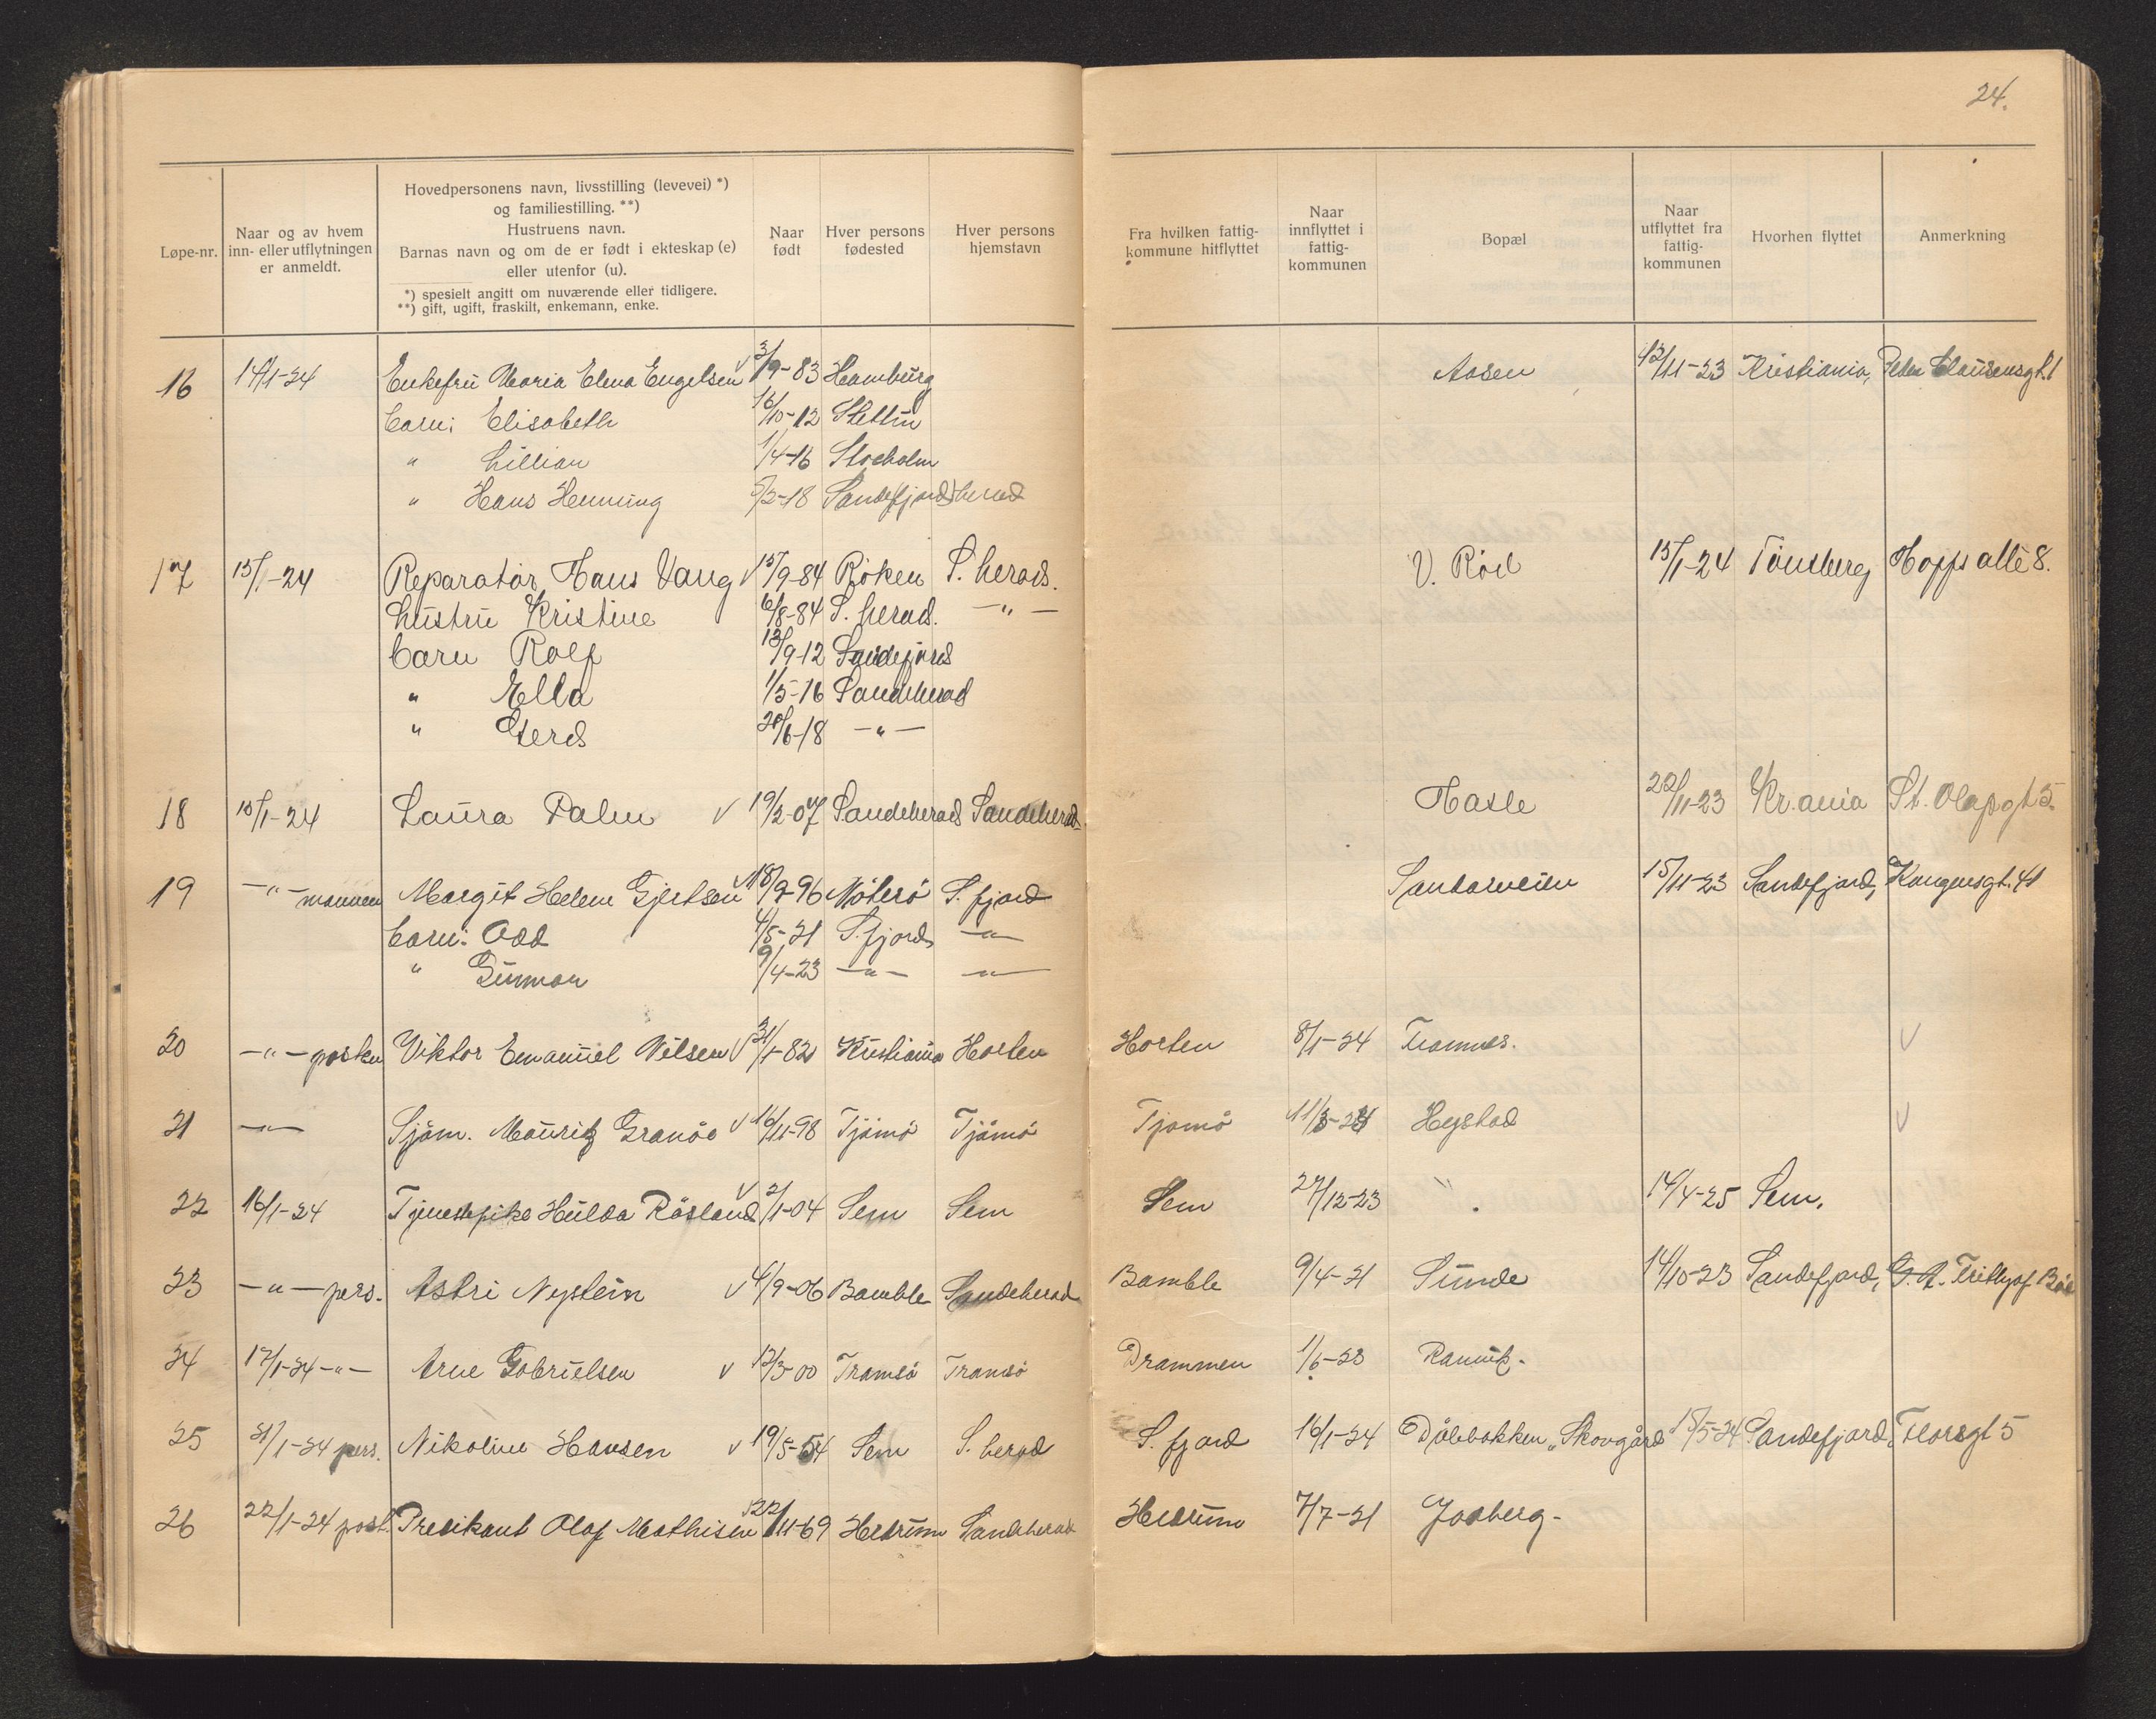 24.
Løpe-nr.
Naar og av hvem
inn- eller utflytningen
er anmeldt.
Hovedpersonens navn, livsstilling (levevei) *)
og familiestilling. **)
Hustruens navn.
Barnas navn og om de er født i ekteskap (e)
eller utenfor (u).
*) spesielt angitt om nuværende eller tidligere.
**) gift, ugift, fraskilt, enkemann, enke.
Naar
født
Hver persons
fødested
Hver persons
hjemstavn
Fra hvilken fattig-
kommune hitflyttet
Naar
innflyttet i
fattig-
kommunen
Bopæl
Naar
utflyttet fra
fattig-
kommunen
Hvorhen flyttet
Anmerkning
16 14/1-24 Enkefru Maria Elena Engelsen v 3/9-83 Hamburg Aasen 12/11-23 Kristiania, Peder Clausensgt. 1
barn: Elisabeth 16/10-12 Stettin
" Lillian 1/4-16 Stocholm
" Hans Henning 5/2-18 Sandefjord herad
17 15/1-24 Reparatør Hans Vang v 15/9-84 Röken S. herad. V. Röd 15/1-24 Tönsberg Hopps allé 8.
hustru Kristine 6/8-84 S. herad. -"-
barn Rolf 13/9-12 Sandefjord
" Ella 1/5-16 Sandeherad
" Gerd 20/6-18 -"-
18 15/1-24 Laura Palm v 19/2-07 Sandeherad Sandeherad Hasle 22/11-23 Kr.ania St. Olafsgt 5.
19 -"- mannen Margit Helene Gjertsen v 18/9-96 Nöterö S. fjord Sandarveien 15/11-23 Sandefjord, Kongensgt. 41
barn: Odd 4/5-21 S. fjord -"-
" Gunnar 9/4-23 -"- -"-
20 -"- posten Viktor Emanuel Nilsen v 31/1-82 Kristiania Horten Horten 8/1-24 Framnes. v
21 -"- Sjöm. Mauritz Granöe v 16/11-98 Tjömö Tjömö Tjömö 11/3-24 Hystad v
22 16/1-24 Tjenestepike Hulda Rösland v 2/1-04 Sem Sem Sem 27/12-23 " 14/4-25 Sem.
23 -"- pers. Astri Nystein v 4/9-06 Bamble Sandeherad Bamble 9/4-21 Sunde 14/10-23 Sandefjord, G. A. Frithjof Böe
24 17/1-24 -"- Arne Gabrielsen v 12/3-00 Tromsö Tromsö Drammen 1/6-23 Ranvik.
25 21/1-24 pers. Nikoline Hansen v 19/5-54 Sem S. herad S. fjord 16/1-24 Dölebakken "Skovgård" 15/5-24 Sandefjord, Florsgt 5
26 22/1-24 post. Predikant Olaf Mathisen 22/11-69 Hedrum Sandeherad Hedrum 7/7-21 Joaberg-